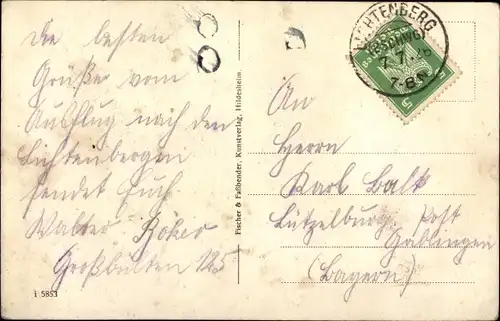 Die besten
Grüße vom
Ausflug nach den
Lichtenbergen
sendet Euch
Walter Röker
Großbülten 125
i 5853
Fischer & Faßbender, Kunstverlag, Hildesheim.
LICHTENBERG
7.7.26
7-8
5 5
An
Herrn
Karl Balk
Lützelburg, Post
Gablingen
(Bayern)